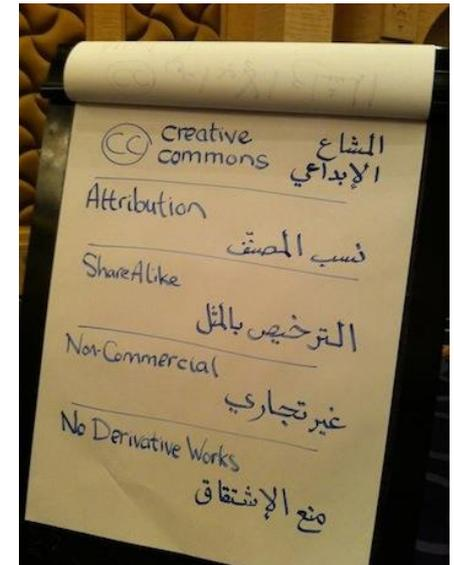 CC creative
commons
المشاع
الإبداعي
Attribution
نسب المصنّف
ShareAlike
الترخيص بالمثل
Non-Commercial
غير تجاري
No Derivative Works
منع الإشتقاق